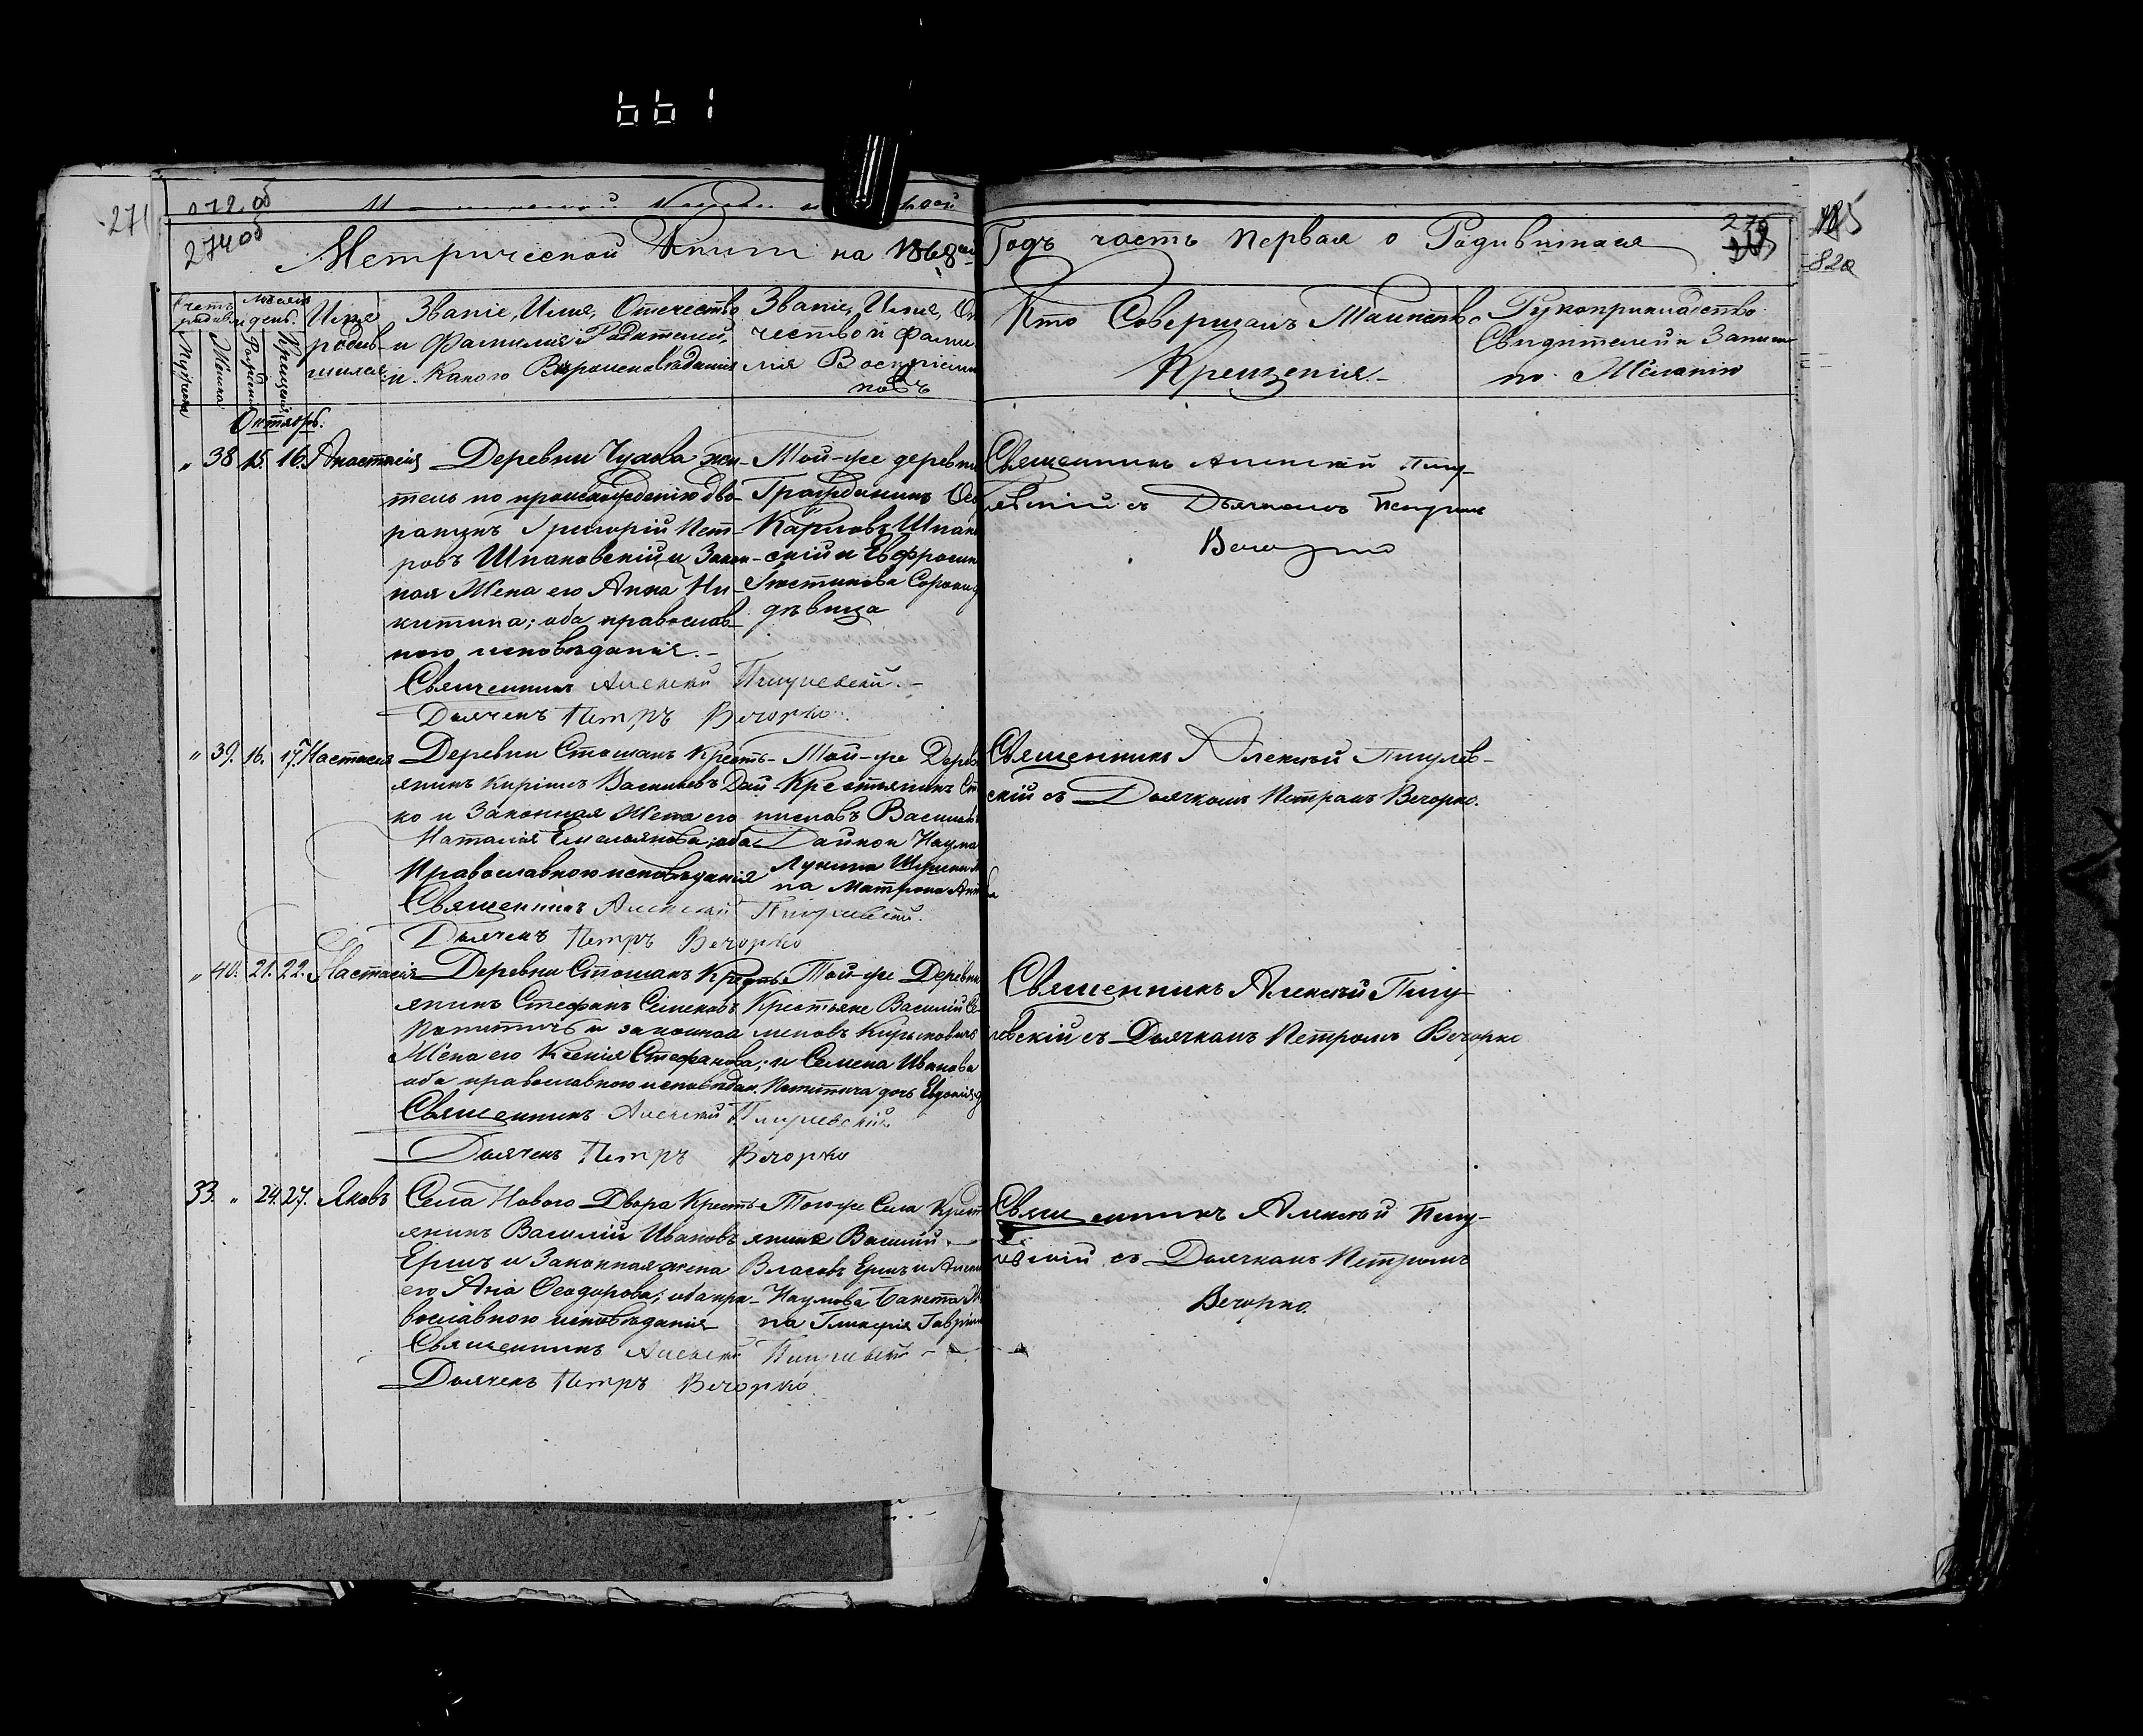 661
271
172 об
274 об
275
185
820
Метрической Книги на 1868й Годъ часть первая о Родившихся
Счетъ родив.
Мужеска
Женска
Мѣсяцъ и день.
Рожденія
Крещенія
Имя родив-
шихся.
Званіе, Имя, Отечество
и Фамилія Родителей,
и Какого Вѣроисповѣданія
Званіе, Имя, От
чество и фами
лія Воспріемн
ковъ
Кто Совершалъ Таинство
Крещенія.
Рукоприкладство
Свидетелей и Записи
по Желанію
Октябрь.
" 38 15. 16. Анастасія
Деревни Чудова жи-
тель по происхожденію дво-
рянинъ Григорій Пет-
ровъ Шпаковскій и Закон-
ная Жена его Анна Ни-
китина; оба православ-
ного исповѣданія.-
Священникъ Алексѣй Пигулевскій.-
Дьячекъ Петръ Вечорко.
Той-же деревни
Гражданинъ
Карповъ Шпаков
скій и Евфросин
Іюстинова
дѣвица
Священникъ Алексѣй Пигу-
левскій съ Дьячкомъ Петромъ
Вечорко
" 39. 16. 17. Настасія
Деревни Стошанъ Кресть-
янинъ Кирилъ Васильевъ Дай-
ко и Законная Жена его
Наталія Емельянова; оба
Православного исповѣданія
Священникъ Алексѣй Пигулевскій.
Дьячекъ Петръ Вечорко
Той-же Дерев
Крестьянинъ
ниславъ Василь
Дайкои Наума
Лукина
на Матрона
Священникъ Алексѣй Пигулев-
скій съ Дьячкомъ Петромъ Вечорко.
" 40. 21. 22. Настасія
Деревни Стошанъ Кресть-
янинъ Стефанъ Семеновъ
и законная
Жена его Ксенія Стефанова;
оба православного исповѣдан.
Священникъ Алексѣй Пигулевскій
Дьячекъ Петръ Вечорко
Той-же Деревни
Крестьяне Василій Се-
меновъ
и Семена Иванова
дочь Евдокія
Священникъ Алексѣй Пигу-
левскій съ Дьячкомъ Петромъ Вечорко
33. " 24. 27. Яковъ
Села Нового Двора Кресть-
янинъ Василій Ивановъ
Ершъ и Законная жена
его Анна Феодорова; оба пра-
вославного исповѣданія
Священникъ Алексѣй Пигулевскій
Дьячекъ Петръ Вечорко.
Того-же Села Крест
янинъ Василій
Власовъ Ершъ и
Наумова
на Гликерія Гаврил
Священникъ Алексѣй Пигу-
левскій съ Дьячкомъ Петромъ
Вечорко.